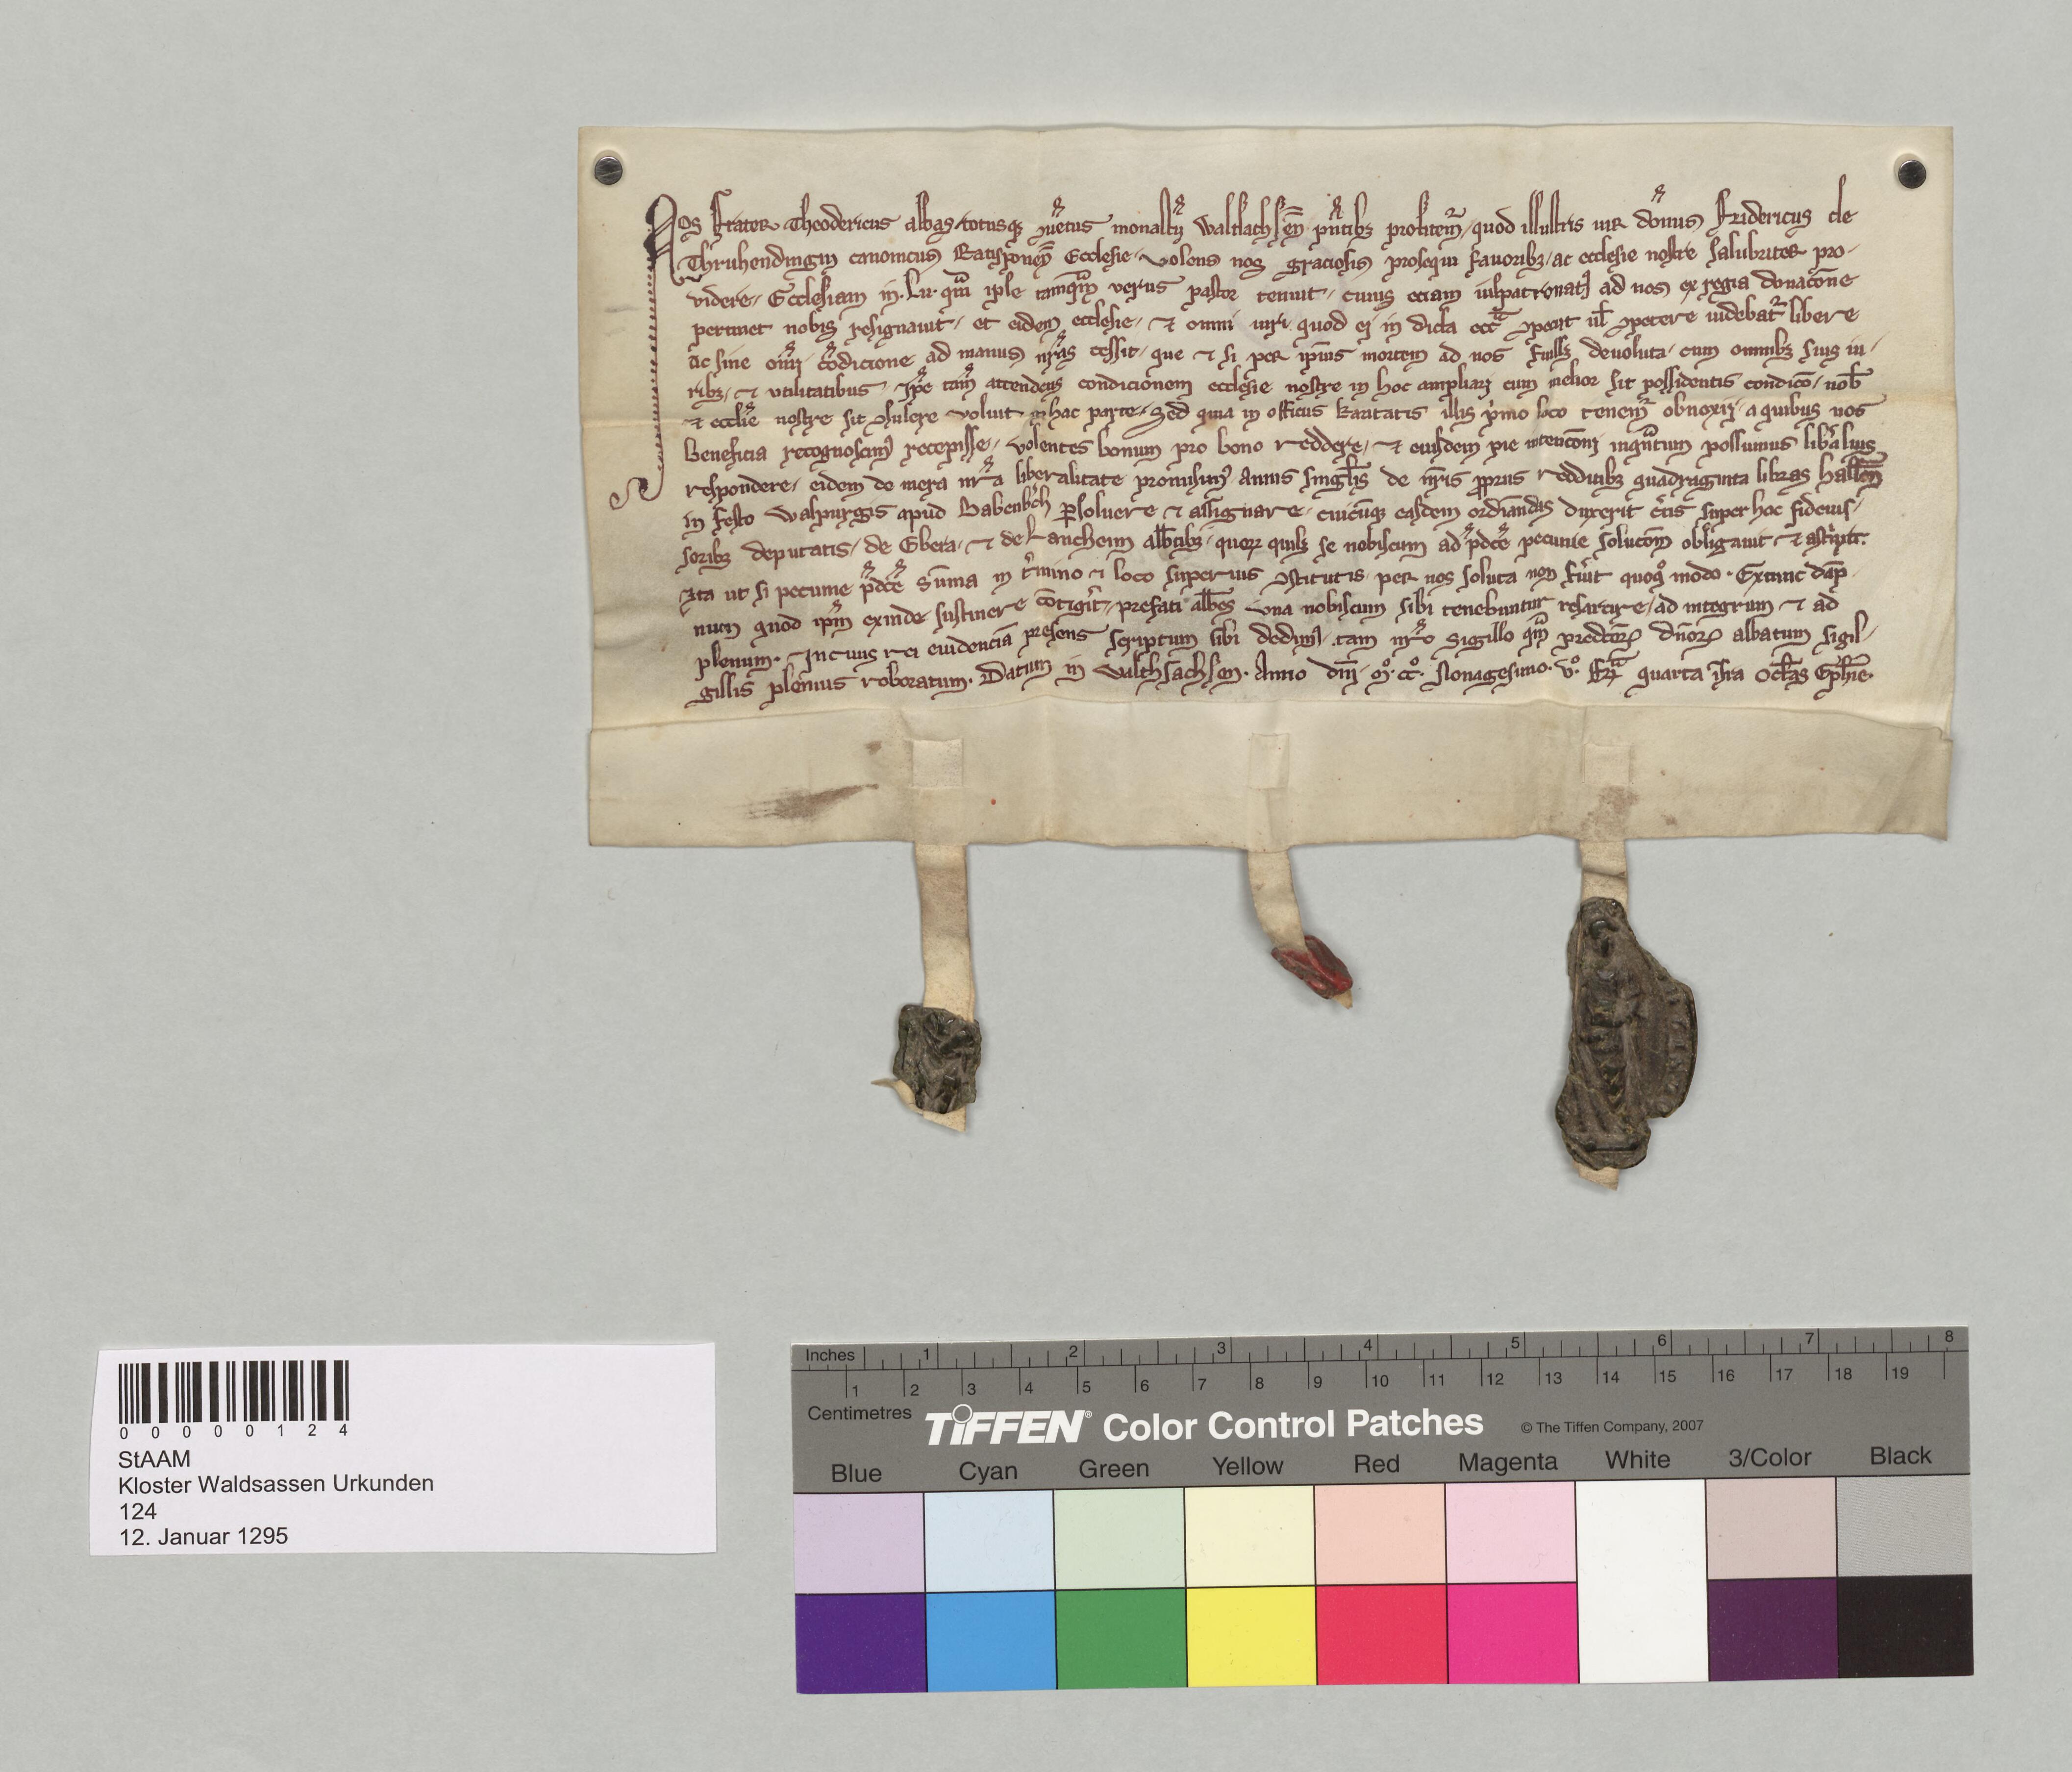 Nos frater Theodericus abbas totusq; ꝯuētus monastͥij Waltsachsēn p̄ntib; profitem̄ quod illustris uir dominus Fridericus de
Thruhendingin canonicus Ratisponēn Ecclesie, volens nos graciosis prosequi fauorib; ac ecclesie nostre salubriter pro-
videre, Ecclesiam in Lu. qm̄ ipse tamqm̄ verus pastor tenuit, cuius eciam iuspatronatꝰ ad nos ex regia donacōne
pertinet nobis resignauit, et eidem ecclesie, et omni iuri quod ei in dicta ecc̄a ꝯpetit ul̄ ꝯpetere uidebat᷑ libere
ac sine om̄i cōdicione ad manus nr̄as cessit, que et si per ip̄ius mortem ad nos fuiss; deuoluta cum omnib; suis iu-
rib; et utilitatibus, Ip̄e tam̄ attendens condicionem ecclesie nostre in hoc ampliari cum melior sit possidentis condicō, nob̄
et eccl̄ie nostre sic ꝯsulere voluit in hac parte, Sed quia in officiis karitatis illis p̄mo loco tenem᷑ obnoxij, a quibus nos
beneficia recognoscimꝰ recepisse, volentes bonum pro bono reddere, et eiusdem pie intencōni inqn̄tum possumus lib̄alius
respondere, eidem de mera nr̄a liberalitate promisimꝰ Annis singl̄is de nr̄is ꝓpriis redditib; quadraginta libras hallēn
in festo Walpurgis apud Babenbch̄ ꝑsoluere et assignare, cuicūq; easdem ordinandas duxerit c̄tis super hoc fideius-
sorib; deputatis, de Ebera, et de Lancheim abb̄tib;, quoꝝ quilib; se nobiscum ad p̄dc̄e pecunie solucōm obligauit et astͥnxit.
Ita ut si pecunie p̄dc̄e sūma in t̄mino et loco superius ꝯstitutis per nos soluta non fūit quoqͦ modo. Extunc dāp-
num quod ip̄m exinde sustinere cōtigīt, prefati abb̄es una nobiscum sibi tenebuntur resarcire, ad integrum et ad
plenum. In cuius rei euidenciā presens scriptum sibi dedimꝰ tam nr̄o sigillo qm̄ predc̄oꝝ dn̄oꝝ abbatum sigil-
gillis plenius roboratum. Datum in Walthsachsen. Anno dn̄i. Mͦ. CCͦ. Nonagesimo. Vͦ. Fr̄a quarta īfra Oct̄as Eph̄ie.
0 0 0 0 0 1 2 4
StAAM
Kloster Waldsassen Urkunden
124
12. Januar 1295
Inches 1 2 3 4 5 6 7 8
1 2 3 4 5 6 7 8 9 10 11 12 13 14 15 16 17 18 19
Centimetres
TIFFEN® Color Control Patches © The Tiffen Company, 2007
Blue Cyan Green Yellow Red Magenta White 3/Color Black